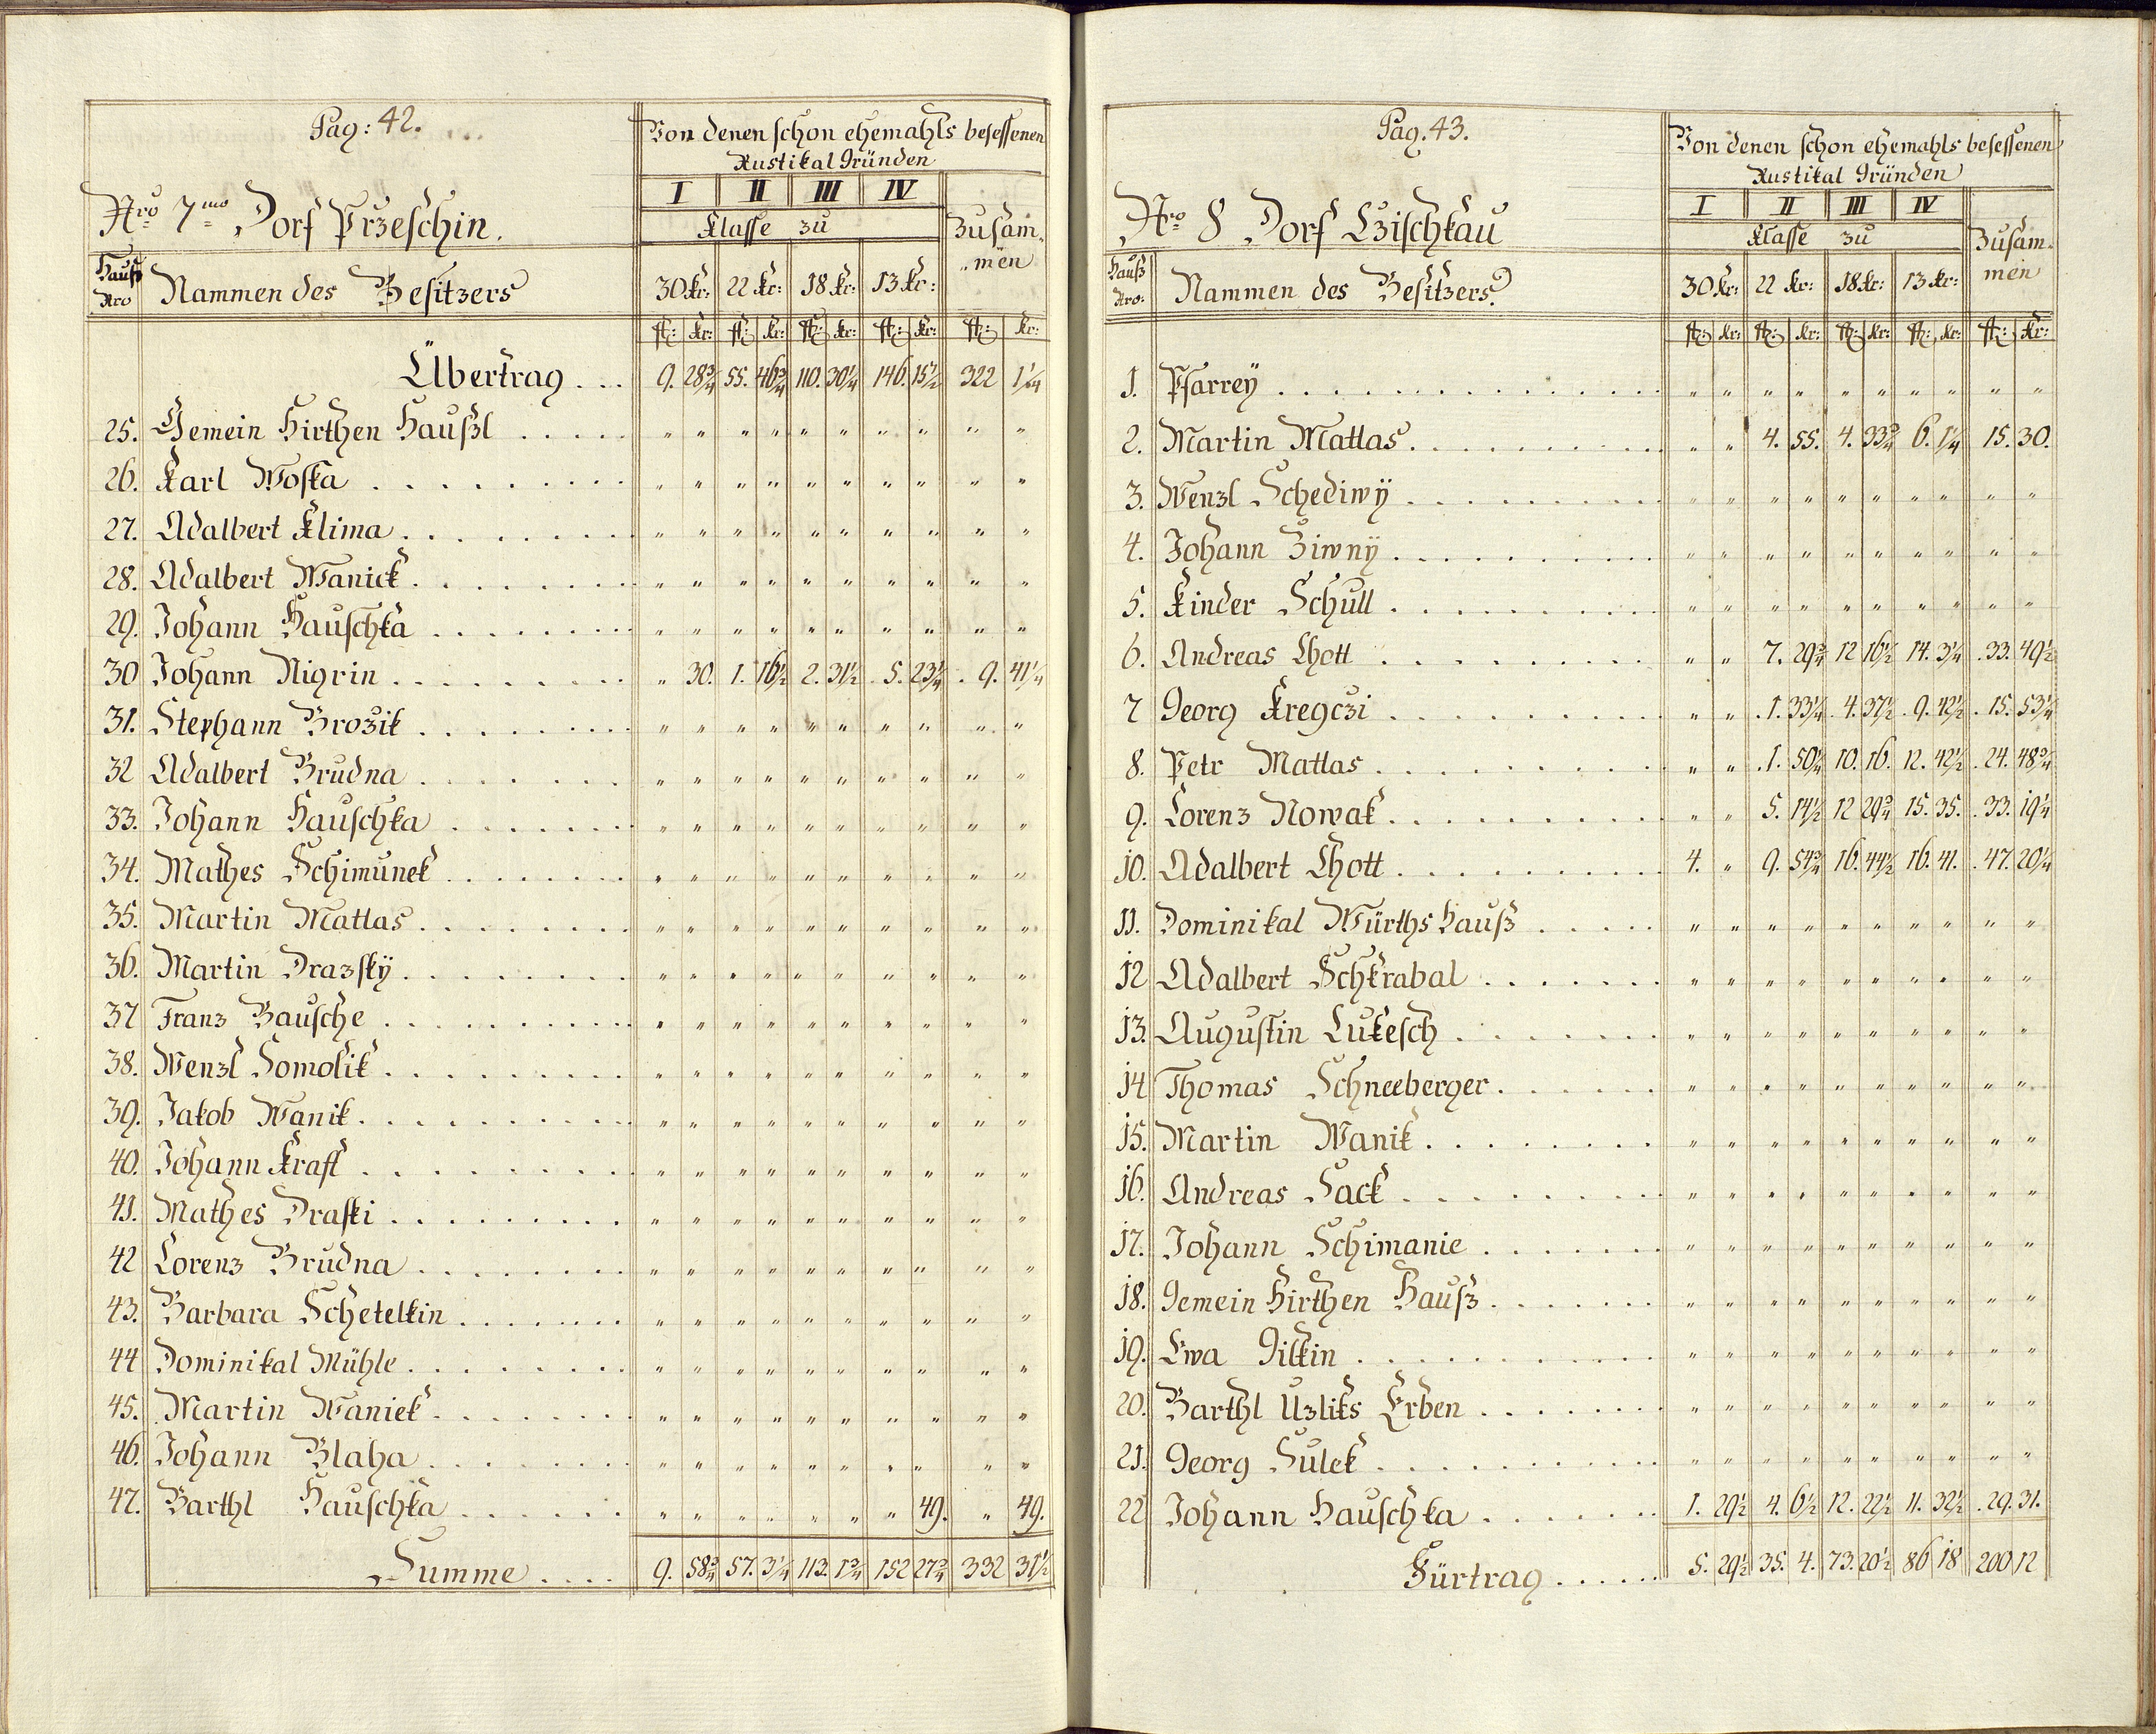 Pag: 42.
Von denen schon ehemahls besessenen
Rustikal Gründen
Nro 7mo Dorf Przeschin.
I II III IV
Klasse zu
Zusam-
men
Hauß Nro Nammen des Besitzers 30 kr: 22 kr: 18 kr: 13 kr:
fl: kr: fl: kr: fl: kr: fl: kr: fl: kr:
Übertrag . . . 9. 28¾ 55. 46¾ 110. 30¼ 146. 15½ 322 1¼
25. Gemein Hirthen Haußl . . . . . " " " " " " " " " "
26. Karl Woska . . . . . . . . . " " " " " " " " " "
27. Adalbert Klima . . . . . . . . " " " " " " " " " "
28. Adalbert Wanick . . . . . . . " " " " " " " " " "
29. Johann Hauschka . . . . . . . " " " " " " " " " "
30 Johann Nigrin . . . . . . . . " 30. 1. 16½ 2. 31½ 5. 23¼ 9. 41¼
31. Stephann Brozik . . . . . . . " " " " " " " " " "
32 Adalbert Brudna . . . . . . . " " " " " " " " " "
33. Johann Hauschka . . . . . . . " " " " " " " " " "
34. Mathes Schimunek . . . . . . " " " " " " " " " "
35. Martin Mattas . . . . . . . . " " " " " " " " " "
36. Martin Drazskÿ . . . . . . . . " " " " " " " " " "
37 Franz Bausche . . . . . . . . . " " " " " " " " " "
38. Wenzl Homolik . . . . . . . . " " " " " " " " " "
39. Jakob Wanik . . . . . . . . . " " " " " " " " " "
40. Johann Kraft . . . . . . . . . " " " " " " " " " "
41. Mathes Draski . . . . . . . . " " " " " " " " " "
42 Lorenz Brudna . . . . . . . . " " " " " " " " " "
43. Barbara Schetelkin . . . . . . . " " " " " " " " " "
44 Dominikal Mühle . . . . . . . . " " " " " " " " " "
45. Martin Waniek . . . . . . . " " " " " " " " " "
46. Johann Blaha . . . . . . . . " " " " " " " " " "
47. Barthl Hauschka . . . . . . " " " " " " " 49. " 49.
Summe . . . . 9. 58¾ 57. 3¼ 113. 1¾ 152 27¾ 332 31½
Pag. 43.
Von denen schon ehemahls besessenen
Rustikal Gründen
Nro 8 Dorf Czischkau
I II III IV
Klasse zu
Zusam-
men
Hauß Nro: Nammen des Besitzers 30 kr: 22 kr: 18 kr: 13 kr:
fl: kr: fl: kr: fl: kr: fl: kr: fl: kr:
1. Pfarreÿ . . . . . . . . . . . . " " " " " " " " " "
2. Martin Mattas . . . . . . . . " " 4. 55. 4. 33¾ 6. 1¼ 15. 30.
3. Wenzl Schediwÿ . . . . . . . . " " " " " " " " " "
4. Johann Ziwnÿ . . . . . . . . . " " " " " " " " " "
5. Kinder Schull . . . . . . . . . " " " " " " " " " "
6. Andreas Chott . . . . . . . . . " " 7. 29¾ 12 16½ 14. 3¼ 33. 49½
7 Georg Kregczi . . . . . . . . . " " 1. 33¼ 4. 37½ 9. 42½ 15. 53¼
8. Petr Mattas . . . . . . . . . " " 1. 50¼ 10. 16. 12. 42½ 24. 48¾
9. Lorenz Nowak . . . . . . . . . " " 5. 14½ 12 29¾ 15. 35. 33. 19¼
10. Adalbert Chott . . . . . . . . . 4. " 9. 54¾ 16. 44½ 16. 41. 47. 20¼
11. Dominikal Würths Hauß . . . . . " " " " " " " " " "
12 Adalbert Schkrabal . . . . . . . " " " " " " " " " "
13. Augustin Lukesch . . . . . . . " " " " " " " " " "
14 Thomas Schneeberger . . . . . . " " " " " " " " " "
15. Martin Wanik . . . . . . . . " " " " " " " " " "
16. Andreas Hack . . . . . . . . . " " " " " " " " " "
17. Johann Schimanie . . . . . . . " " " " " " " " " "
18. Gemein Hirthen Hauß . . . . . . . " " " " " " " " " "
19. Ewa Gilkin . . . . . . . . . . " " " " " " " " " "
20. Barthl Uzliks Erben . . . . . . . " " " " " " " " " "
21. Georg Hulek . . . . . . . . . . " " " " " " " " " "
22 Johann Hauschka . . . . . . . 1. 29½ 4. 6½ 12. 22½ 11. 32½ 29. 31.
Fürtrag . . . . . 5. 29½ 35. 4. 73. 20½ 86 18 200 12